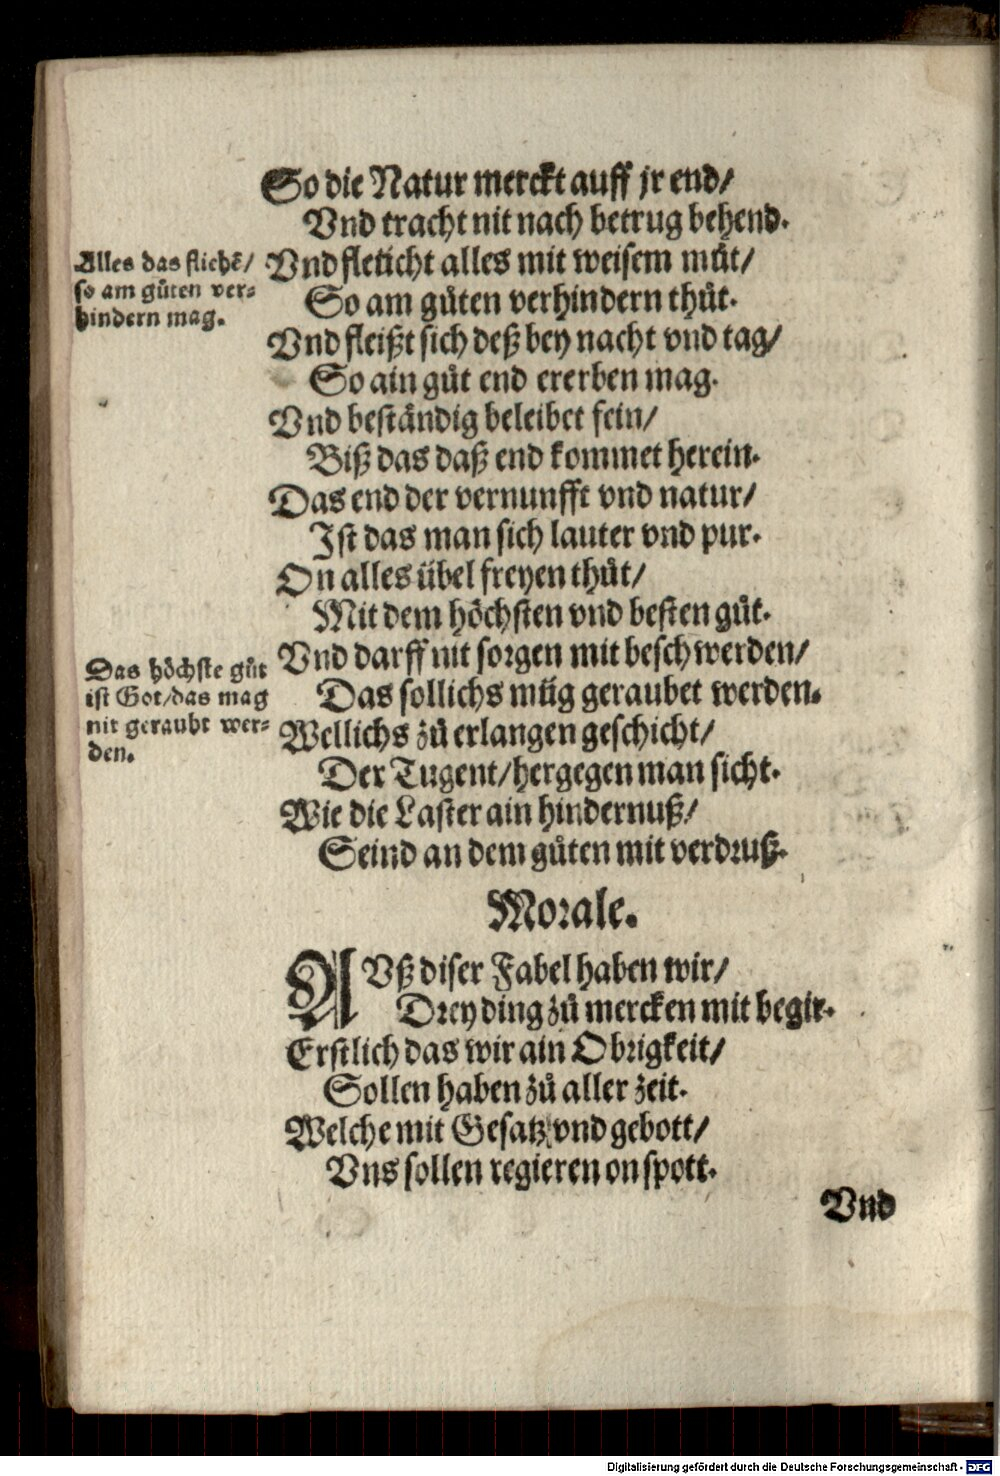 So die Natur merckt auff jr end/
Vnd tracht nit nach betrug behend.
Alles das fliehẽ/
so am gůten ver⸗
hindern mag.
Vnd fleücht alles mit weisem můt/
So am gůten verhindern thůt.
Vnd fleißt sich deß bey nacht vnd tag/
So ain gůt end ererben mag.
Vnd beständig beleibet fein/
Biß das daß end kommet herein.
Das end der vernunfft vnd natur/
Ist das man sich lauter vnd pur.
On alles übel freyen thůt/
Mit dem höchsten vnd besten gůt.
Das höchste gůt
ist Got/das mag
nit geraubt wer⸗
den.
Vnd darff nit sorgen mit beschwerden/
Das sollichs müg geraubet werden.
Wellichs zů erlangen geschicht/
Der Tugent/hergegen man sicht.
Wie die Laster ain hindernuß/
Seind an dem gůten mit verdruß.
Morale.
AVß diser Fabel haben wir/
Drey ding zů mercken mit begir.
Erstlich das wir ain Obrigkeit/
Sollen haben zů aller zeit.
Welche mit Gesatz vnd gebott/
Vns sollen regieren on spott.
Vnd
Digitalisierung gefördert durch die Deutsche Forschungsgemeinschaft - DFG